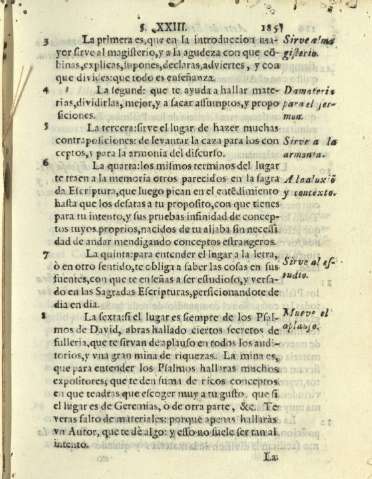 §. XXIII. 185
3 La primera es, que en la introduccion ma-
yor sirve al magisterio, y a la agudeza con que cõ-
binas, explicas, supones, declaras, adviertes, y con
que divides: que todo es enseñanza.
Sirve al ma
gisterio.
4 La segunda: que te ayuda a hallar mate-
rias, dividirlas, mejor, y a sacar assumptos, y propo
siciones.
Da materia
para el ser-
mon.
5 La tercera: sirve el lugar de hazer muchas
contraposiciones: de levantar la caza para los con
ceptos, y para la armonia del discurso.
Sirve a la
armonia.
6 La quarta: los mismos terminos del lugar
te traen a la memoria otros parecidos en la sagra
da Escriptura, que luego pican en el entẽdimiento
hasta que los desatas a tu proposito, con que tienes
para tu intento, y sus pruebas infinidad de concep-
tos tuyos, proprios, nacidos de tu aljaba sin necessi
dad de andar mendigando conceptos estrangeros.
y contexto.
7 La quinta: para entender el lugar a la letra,
ò en otro sentido, te obliga a saber las cosas en sus
fuentes, con que te enseñas a ser estudioso, y versa-
do en las Sagradas Escripturas, perficionandote de
dia en dia.
Sirve al es-
tudio.
8 La sexta: si el lugar es siempre de los Psal-
mos de David, abras hallado ciertos secretos de
fulleria, que te sirvan de aplauso en todos los audi-
torios, y vna gran mina de riquezas. La mina es,
que para entender los Psalmos hallaras muchos
expositores, que te den suma de ricos conceptos
en que tendras que escoger muy a tu gusto, que si
el lugar es de Geremias, ò de otra parte, &c. Te
veras falto de materiales: porque apenas hallaràs
vn Autor, que te dè algo: y esso no suele ser tan al
intento.
Mueve el
aplauso.
La